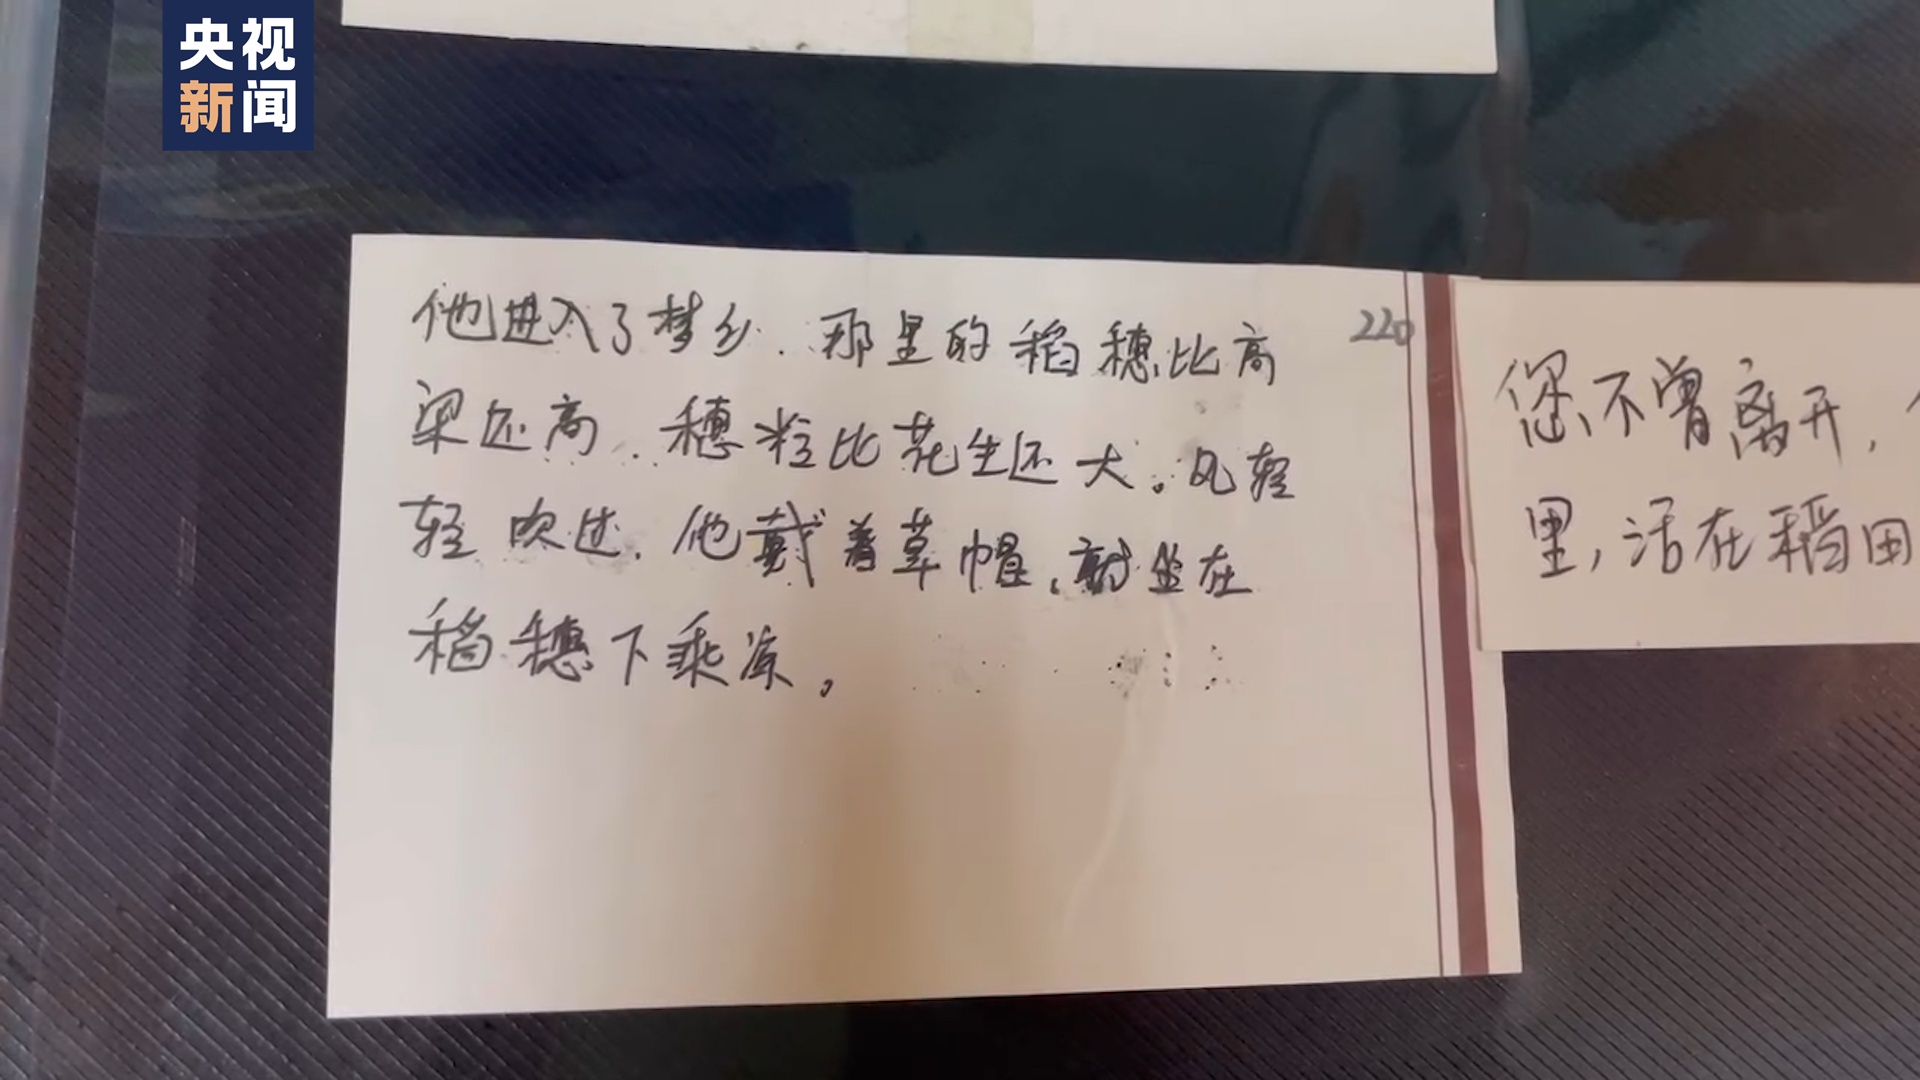 央视
新闻
他进入了梦乡.那里的稻穗比高
220
梁还高.穗粒比花生还大。风轻
轻吹过.他戴着草帽.就坐在
稻穗下乘凉。
您不曾离开,
里,活在稻田